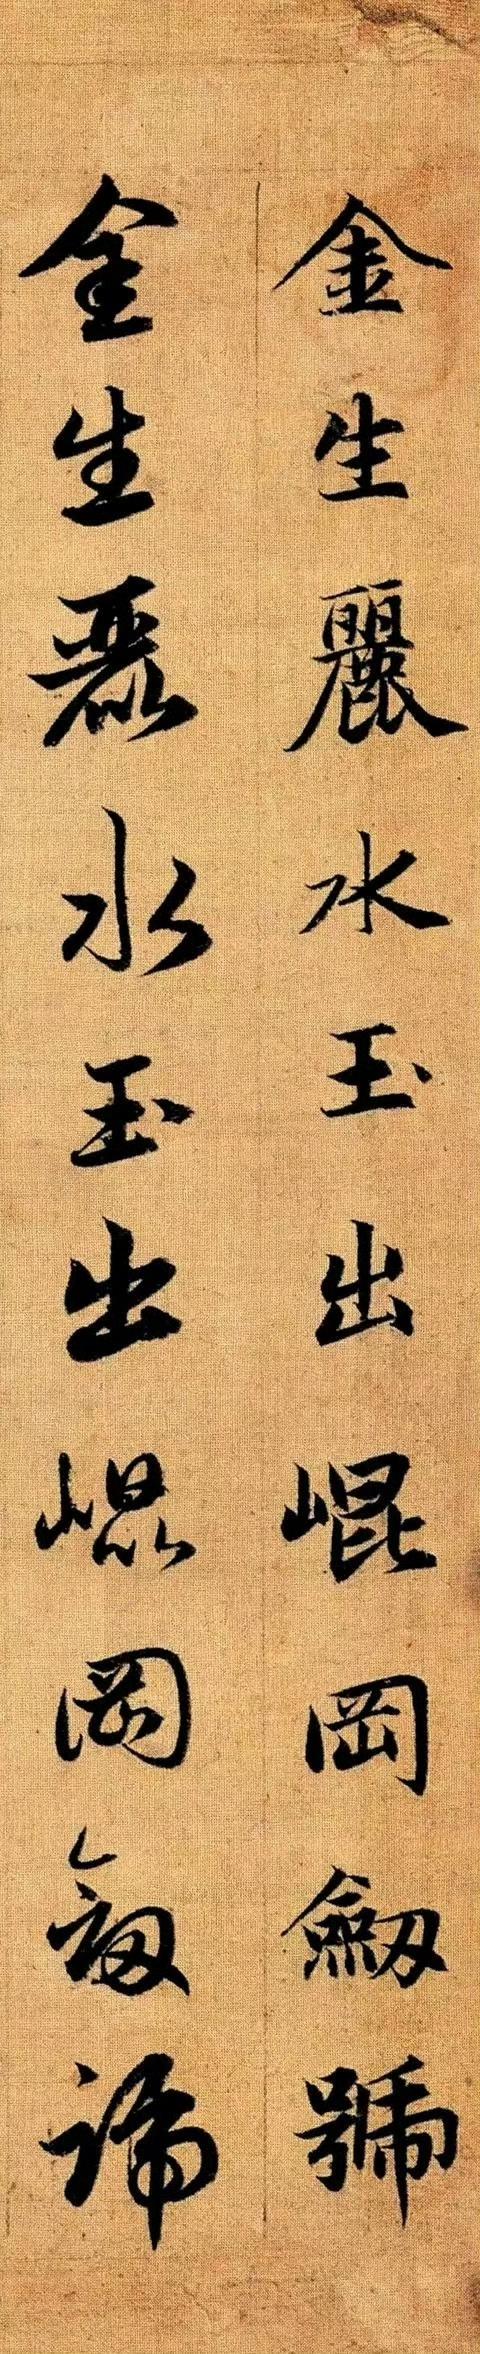 金生麗水玉出崐岡劒號
金生麗水玉出崐岡劒號